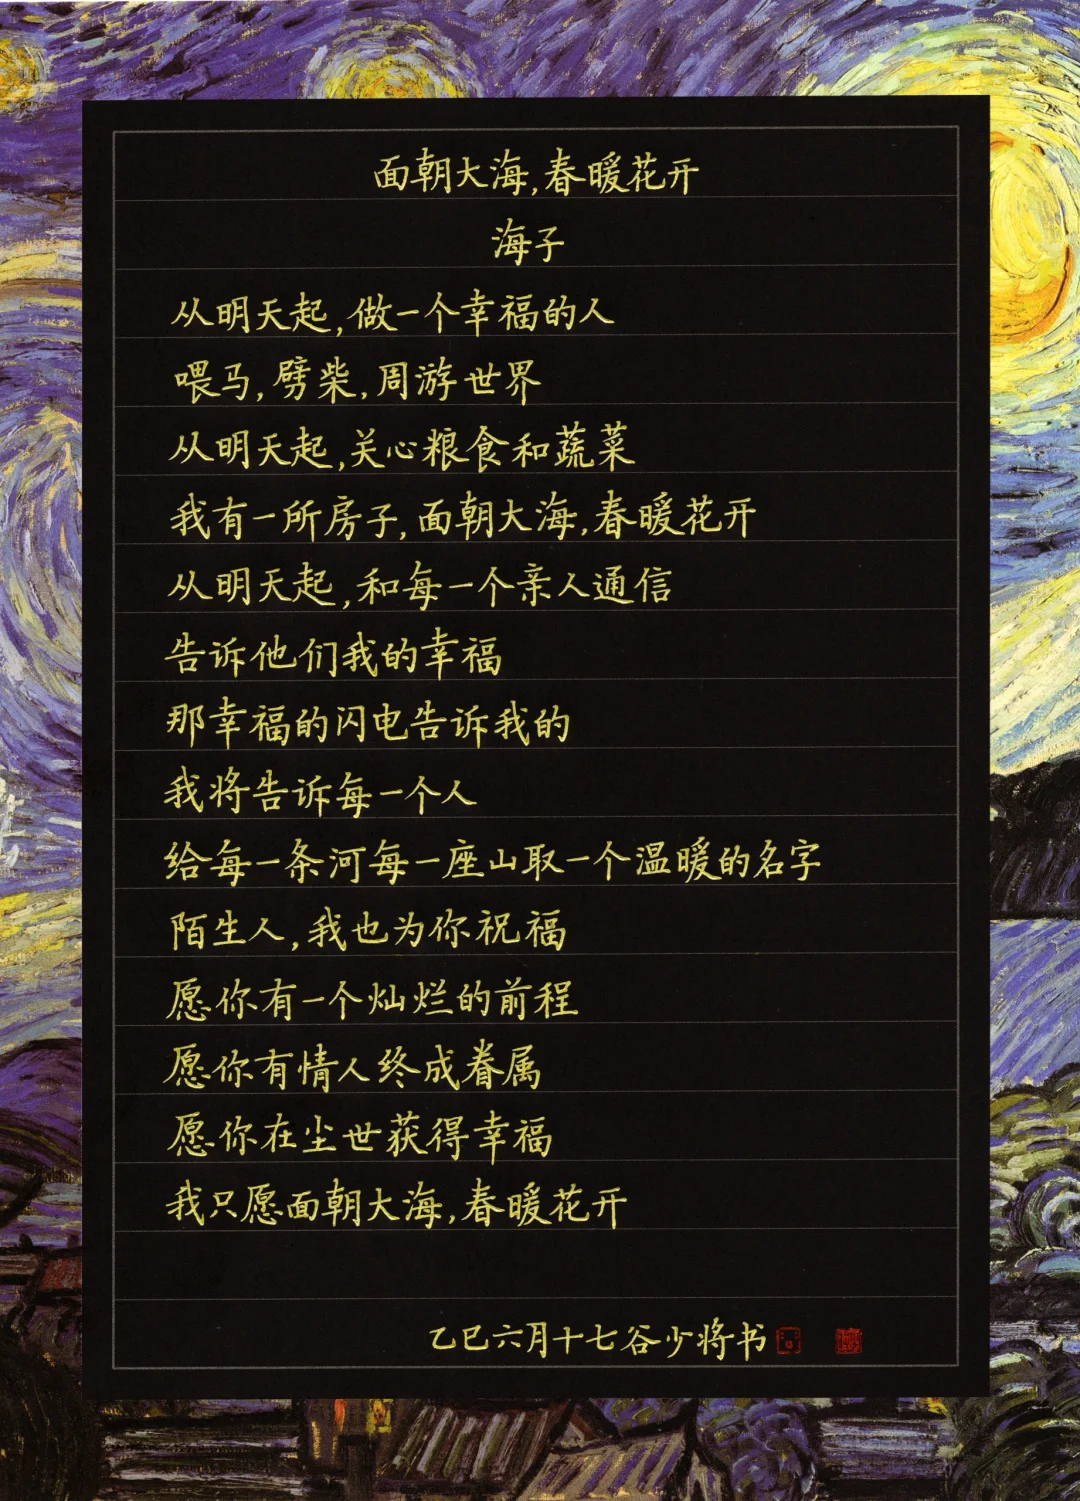 面朝大海,春暖花开
海子
从明天起,做一个幸福的人
喂马,劈柴,周游世界
从明天起,关心粮食和蔬菜
我有一所房子,面朝大海,春暖花开
从明天起,和每一个亲人通信
告诉他们我的幸福
那幸福的闪电告诉我的
我将告诉每一个人
给每一条河每一座山取一个温暖的名字
陌生人,我也为你祝福
愿你有一个灿烂的前程
愿你有情人终成眷属
愿你在尘世获得幸福
我只愿面朝大海,春暖花开
乙巳六月十七谷少将书